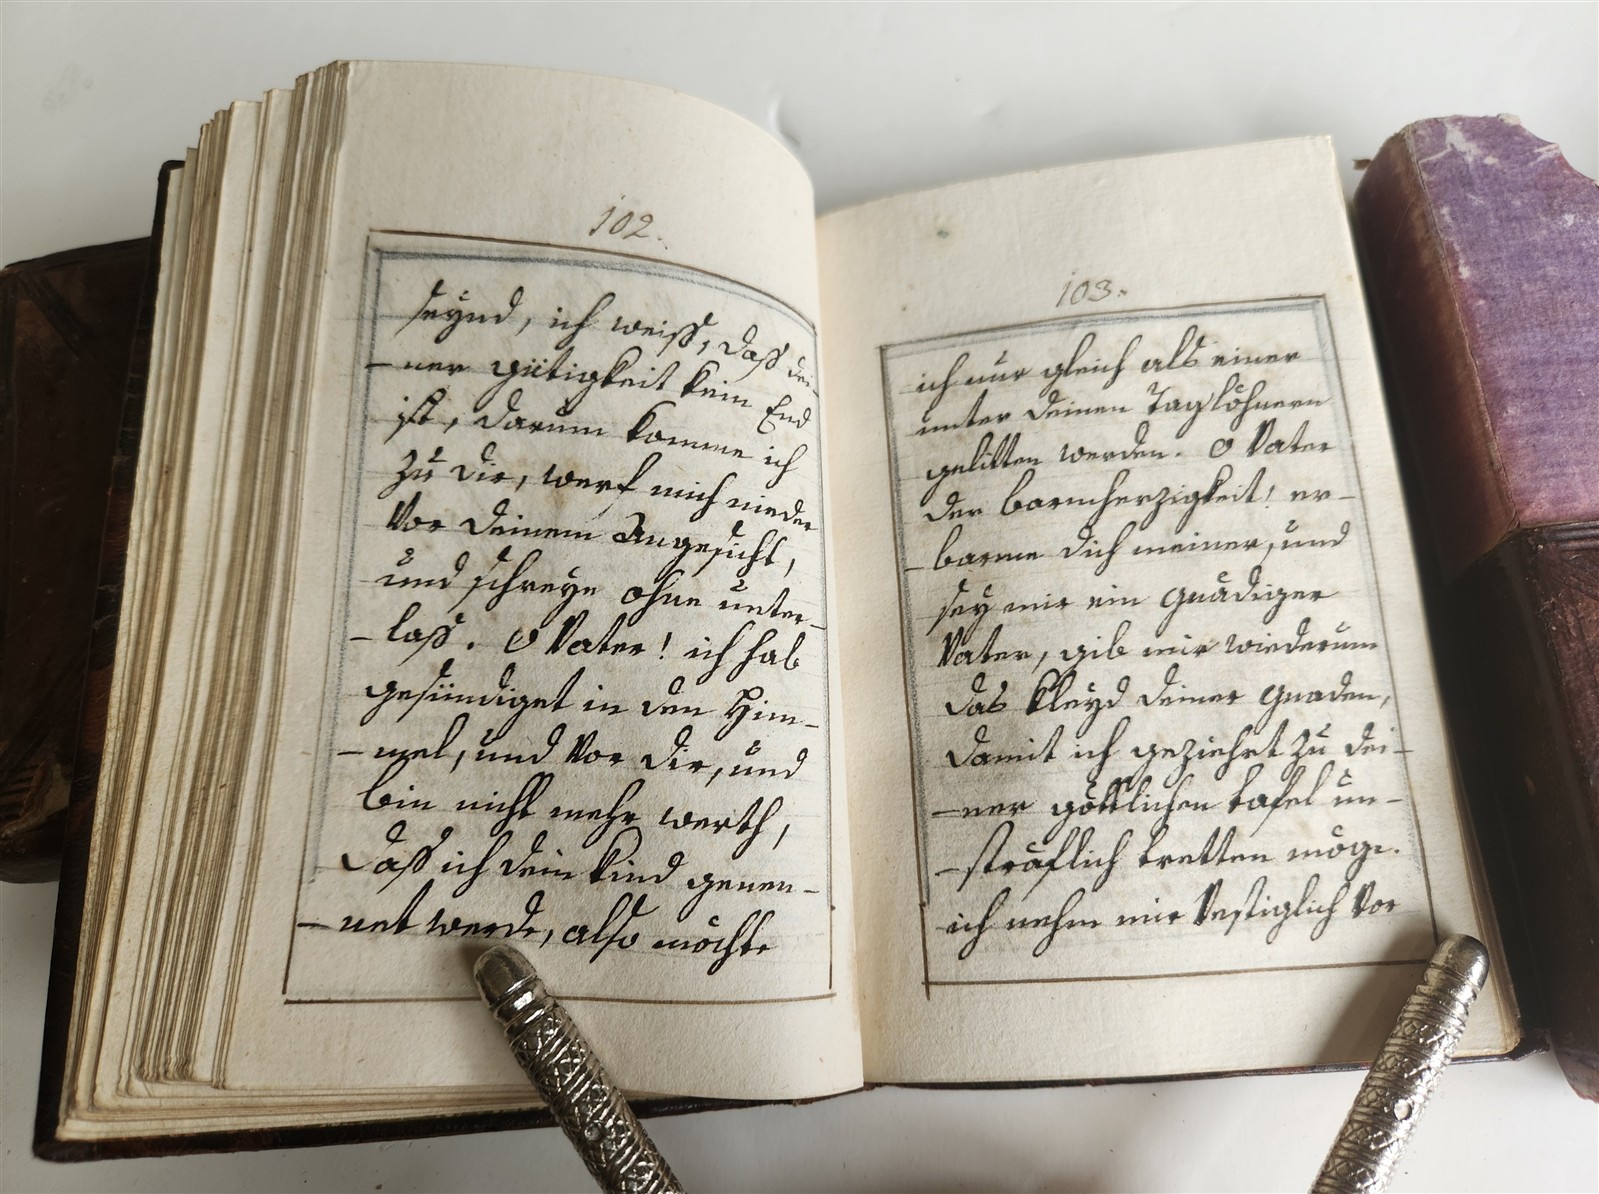 102.
seÿnd, ich weiß, daß dei-
-ner gütigkeit kein End
ist, darum komme ich
zu dir, werf mich nieder
vor deinem Angesicht,
und schreÿe ohne unter-
-laß. O Vater! ich hab
gesündiget in den Him-
-mel, und vor dir, und
bin nicht mehr werth,
daß ich dein kind genen-
-net werde, also möchte
103.
ich nur gleich als einer
unter deinen Taglöhnern
gelitten werden. O Vater
der barmherzigkeit! er-
-barme dich meiner, und
seÿ mir ein gnädiger
Vater, gib mir wiederum
das kleÿd deiner gnaden,
damit ich geziehrt zu dei-
-ner göttlichen tafel un-
-sträflich tretten möge.
ich nehm mir vestiglich vor